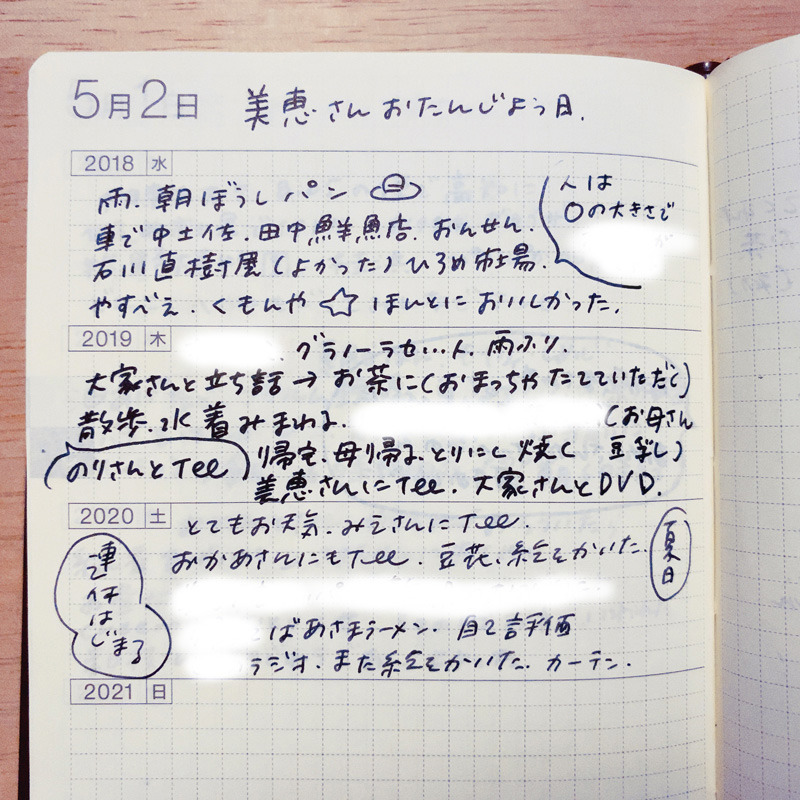 5月2日 美恵さん おたんじょう日.
2018 水
雨. 朝ぼうしパン
車で中土佐. 田中鮮魚店. おんせん.
石川直樹展(よかった)ひろめ市場.
やすべえ. くもんや ☆ ほんとにおいしかった.
人は
○の大きさで
が
2019 木
グラノーラせい人. 雨ふり.
大家さんと立ち話→お茶に(おまっちゃたてていただく)
散歩. 水着みまわる. (お母さん
のりさんとTel
帰宅. 母帰る. とりにく焼く 豆ほし)
美恵さんにTel. 大家さんとDVD.
2020 土
とてもお天気. みえさんにTel.
おかあさんにもTel. 豆花. 絵をかいた.
夏日
連休はじまる
ばあさまラーメン. 自己評価
ラジオ. また絵をかいた. カーテン.
2021 日